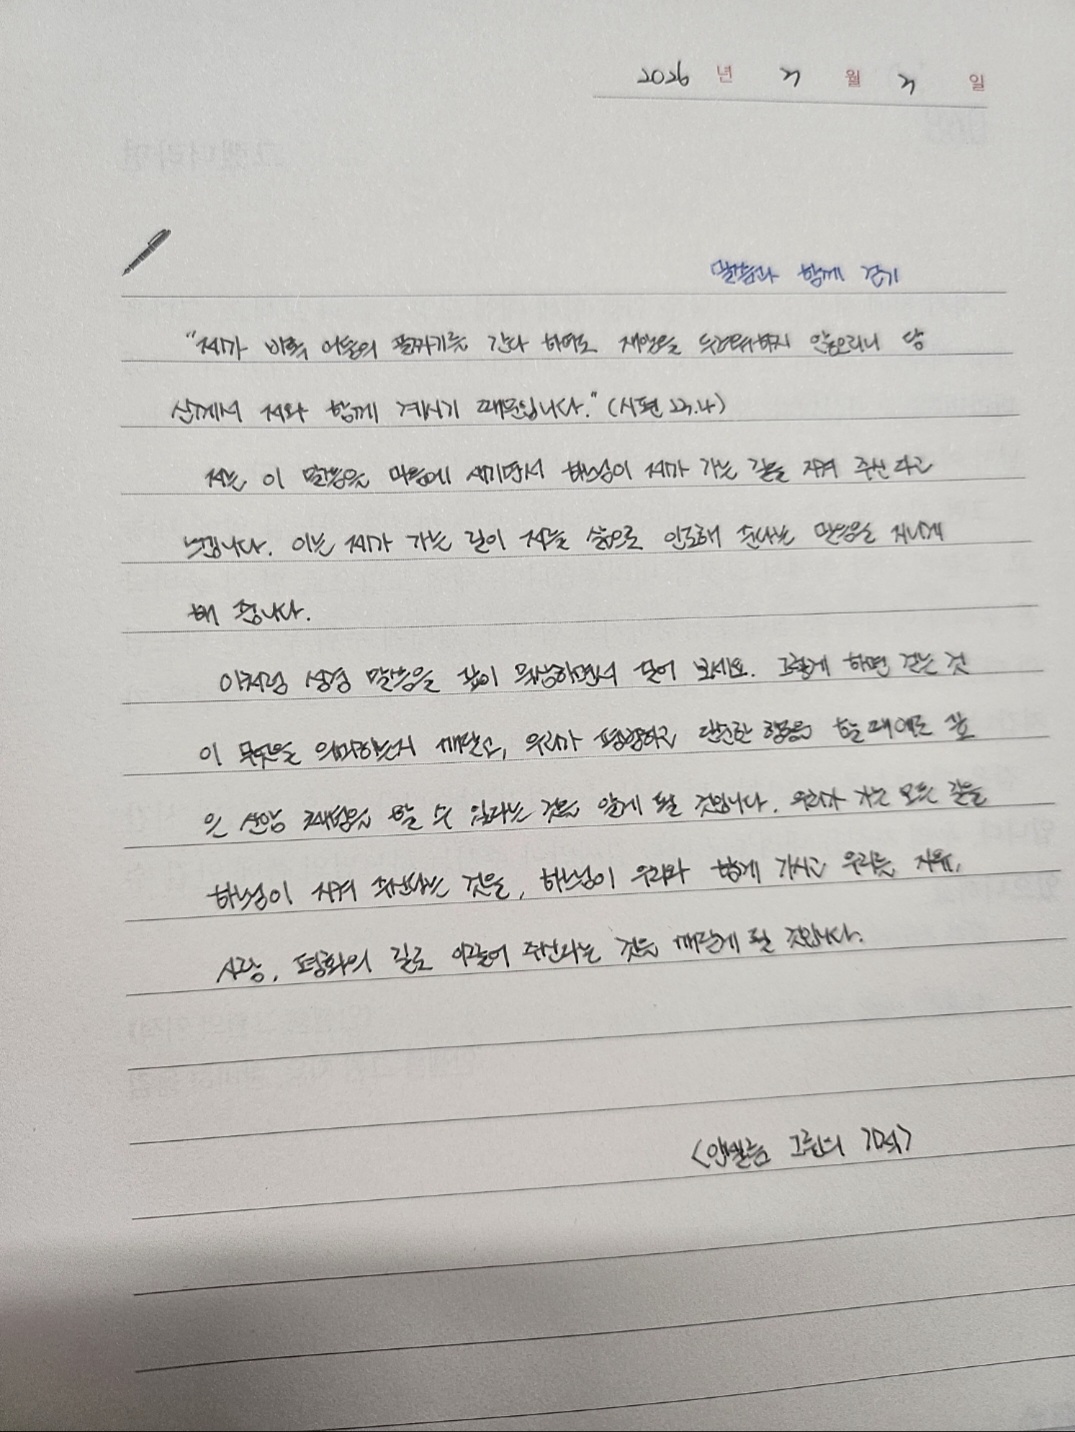 2026 년 7 월 7 일
말씀과 함께 걷기
"제가 비록 어둠의 골짜기를 간다 하여도 재앙을 두려워하지 않으리니 당
신께서 저와 함께 계시기 때문입니다." (시편 23,4)
저는 이 말씀을 마음에 새기면서 하느님이 제가 가는 길을 지켜 주신다고
느낍니다. 이는 제가 가는 길이 저를 삶으로 인도해 준다는 믿음을 지니게
해 줍니다.
이처럼 성경 말씀을 깊이 묵상하면서 걸어 보세요. 그렇게 하면 걷는 것
이 무엇을 의미하는지 깨닫고, 우리가 평범하고 단순한 행동을 할 때에도 깊
은 신앙 체험을 할 수 있다는 것을 알게 될 것입니다. 우리가 가는 모든 길을
하느님이 지켜 주신다는 것을, 하느님이 우리와 함께 가시고 우리를 자유,
사랑, 평화의 길로 이끌어 주신다는 것을 깨닫게 될 것입니다.
<안셀름 그륀의 기적>